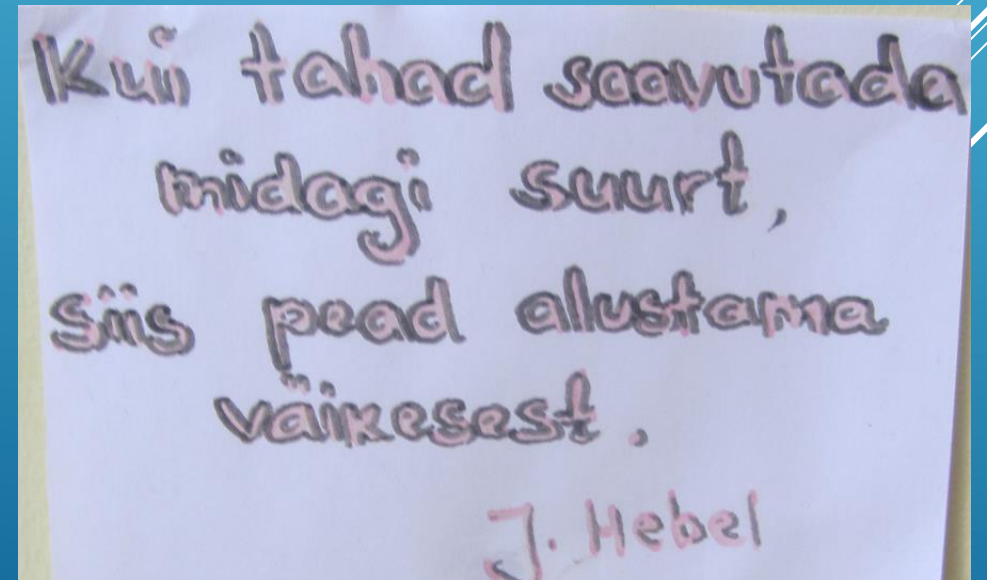 Kui tahad saavutada
midagi suurt,
siis pead alustama
väikesest.
J. Hebel